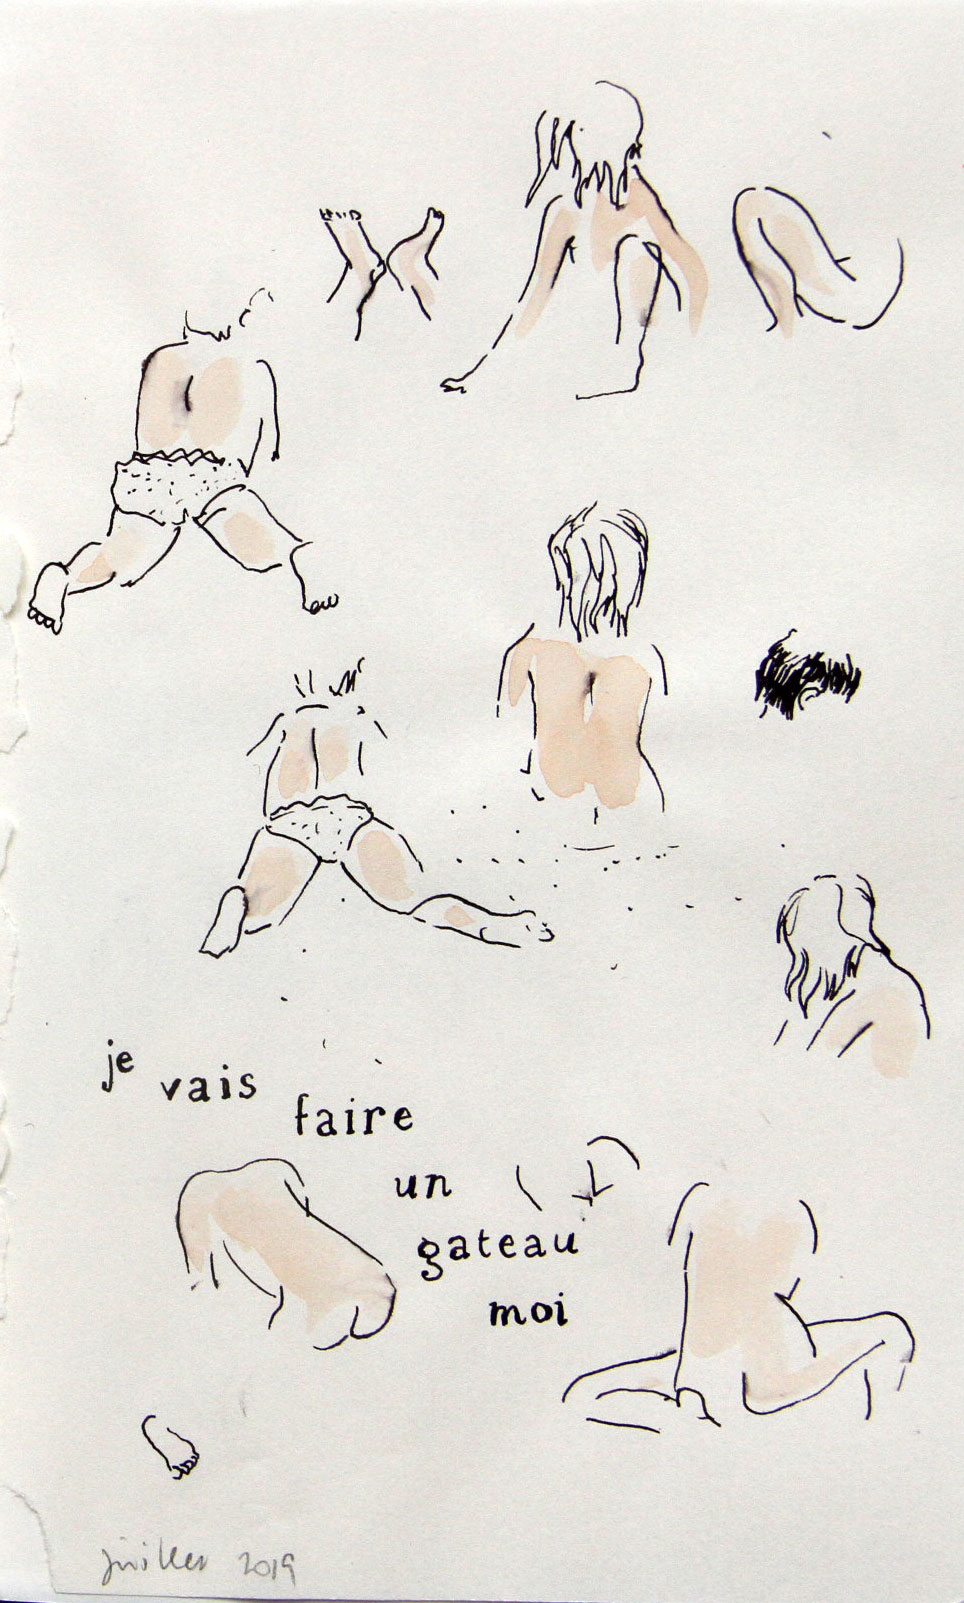 je
vais
faire
un
gateau
moi
juillet 2019